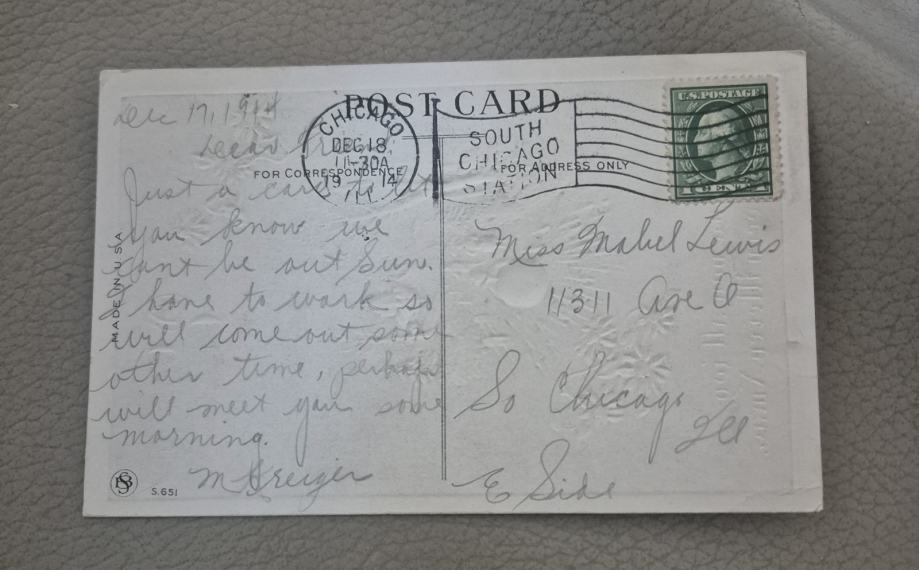 POST CARD
CHICAGO
DEC 18
11-30A
1914
ILL.
SOUTH
CHICAGO
STATION
U.S. POSTAGE
1 CENT 1
FOR CORRESPONDENCE
FOR ADDRESS ONLY
Dec 17, 1914
Dear
Just a card to let
you know we
cant be out Sun.
I have to work so
will come out some
other time, perhaps
will meet you some
morning.
M Kreiger
Miss Mabel Lewis
11311 Ave O
So Chicago
Ill
E Side
MADE IN USA
S.651